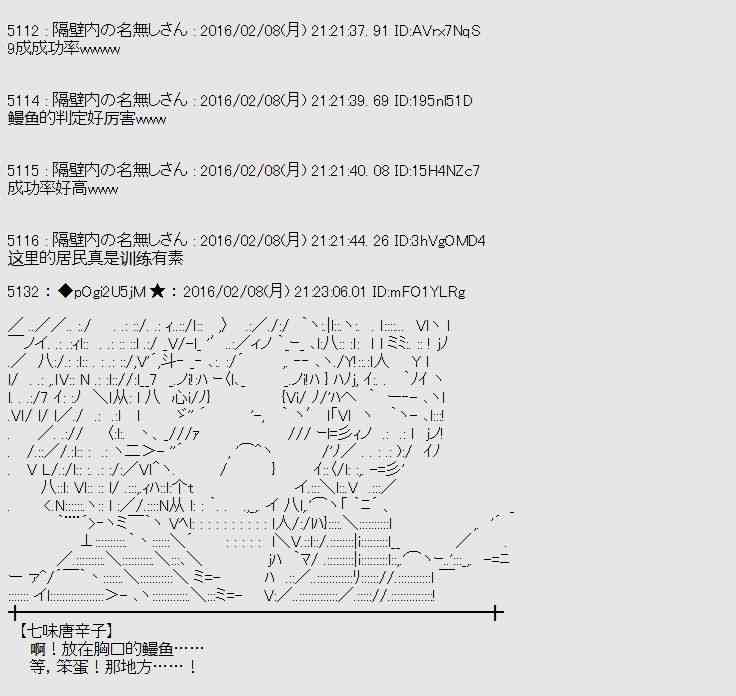 5112 : 隔壁内の名無しさん : 2016/02/08(月) 21:21:37. 91 ID:AVrx7NqS
9成成功率wwww
5114 : 隔壁内の名無しさん : 2016/02/08(月) 21:21:39. 69 ID:195nl51D
鳗鱼的判定好厉害www
5115 : 隔壁内の名無しさん : 2016/02/08(月) 21:21:40. 08 ID:15H4NZc7
成功率好高www
5116 : 隔壁内の名無しさん : 2016/02/08(月) 21:21:44. 26 ID:3hVgOMD4
这里的居民真是训练有素
5132 : ◆pOgi2U5jM ★ : 2016/02/08(月) 21:23:06.01 ID:mFO1YLRg
【七味唐辛子】
啊！放在胸口的鳗鱼……
等，笨蛋！那地方……！